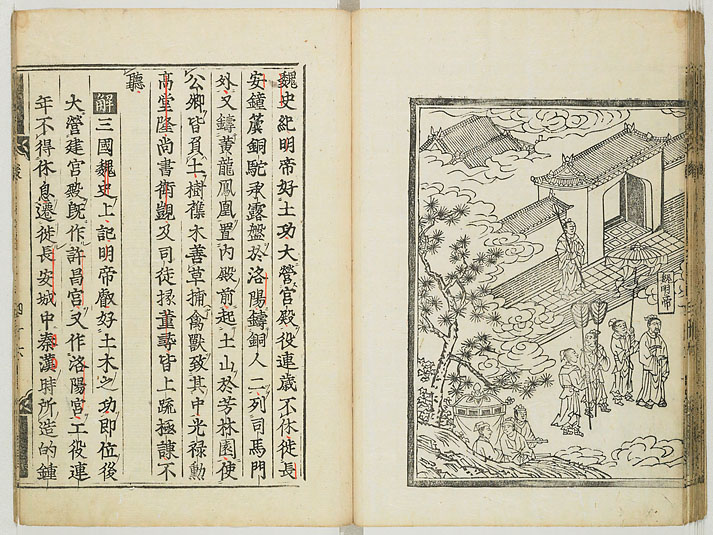 魏明帝
魏史紀明帝好土功大營宮殿役連歲不休徙長
安鐘簴銅駝承露盤於洛陽鑄銅人二列司馬門
外又鑄黃龍鳳凰置內殿前起土山於芳林園使
公卿皆負土樹雜木善草捕禽獸致其中光祿勳
高堂隆尚書衛覬及司徒掾董尋皆上疏極諫不
聽
解三國魏史上記明帝叡好土木之功即位後
大營建宮殿既作許昌宮又作洛陽宮工役連
年不得休息遷徙長安城中秦漢時所造的鍾